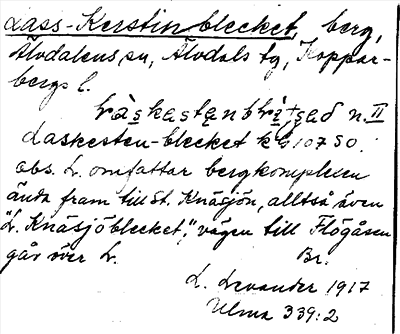 Lass-Kerstinblecket, berg,
Älvdalens sn, Älvdals tg, Koppar-
bergs l.
n. II
Laskesten-blecket k G 107 SO.
obs. L. omfattar bergkomplexen
ända fram till St. Knäsjön, alltså även
"L. Knäsjöblecket", vägen till Flögåsen
går över L. Br.
L. Levander 1917
Ulma 339:2